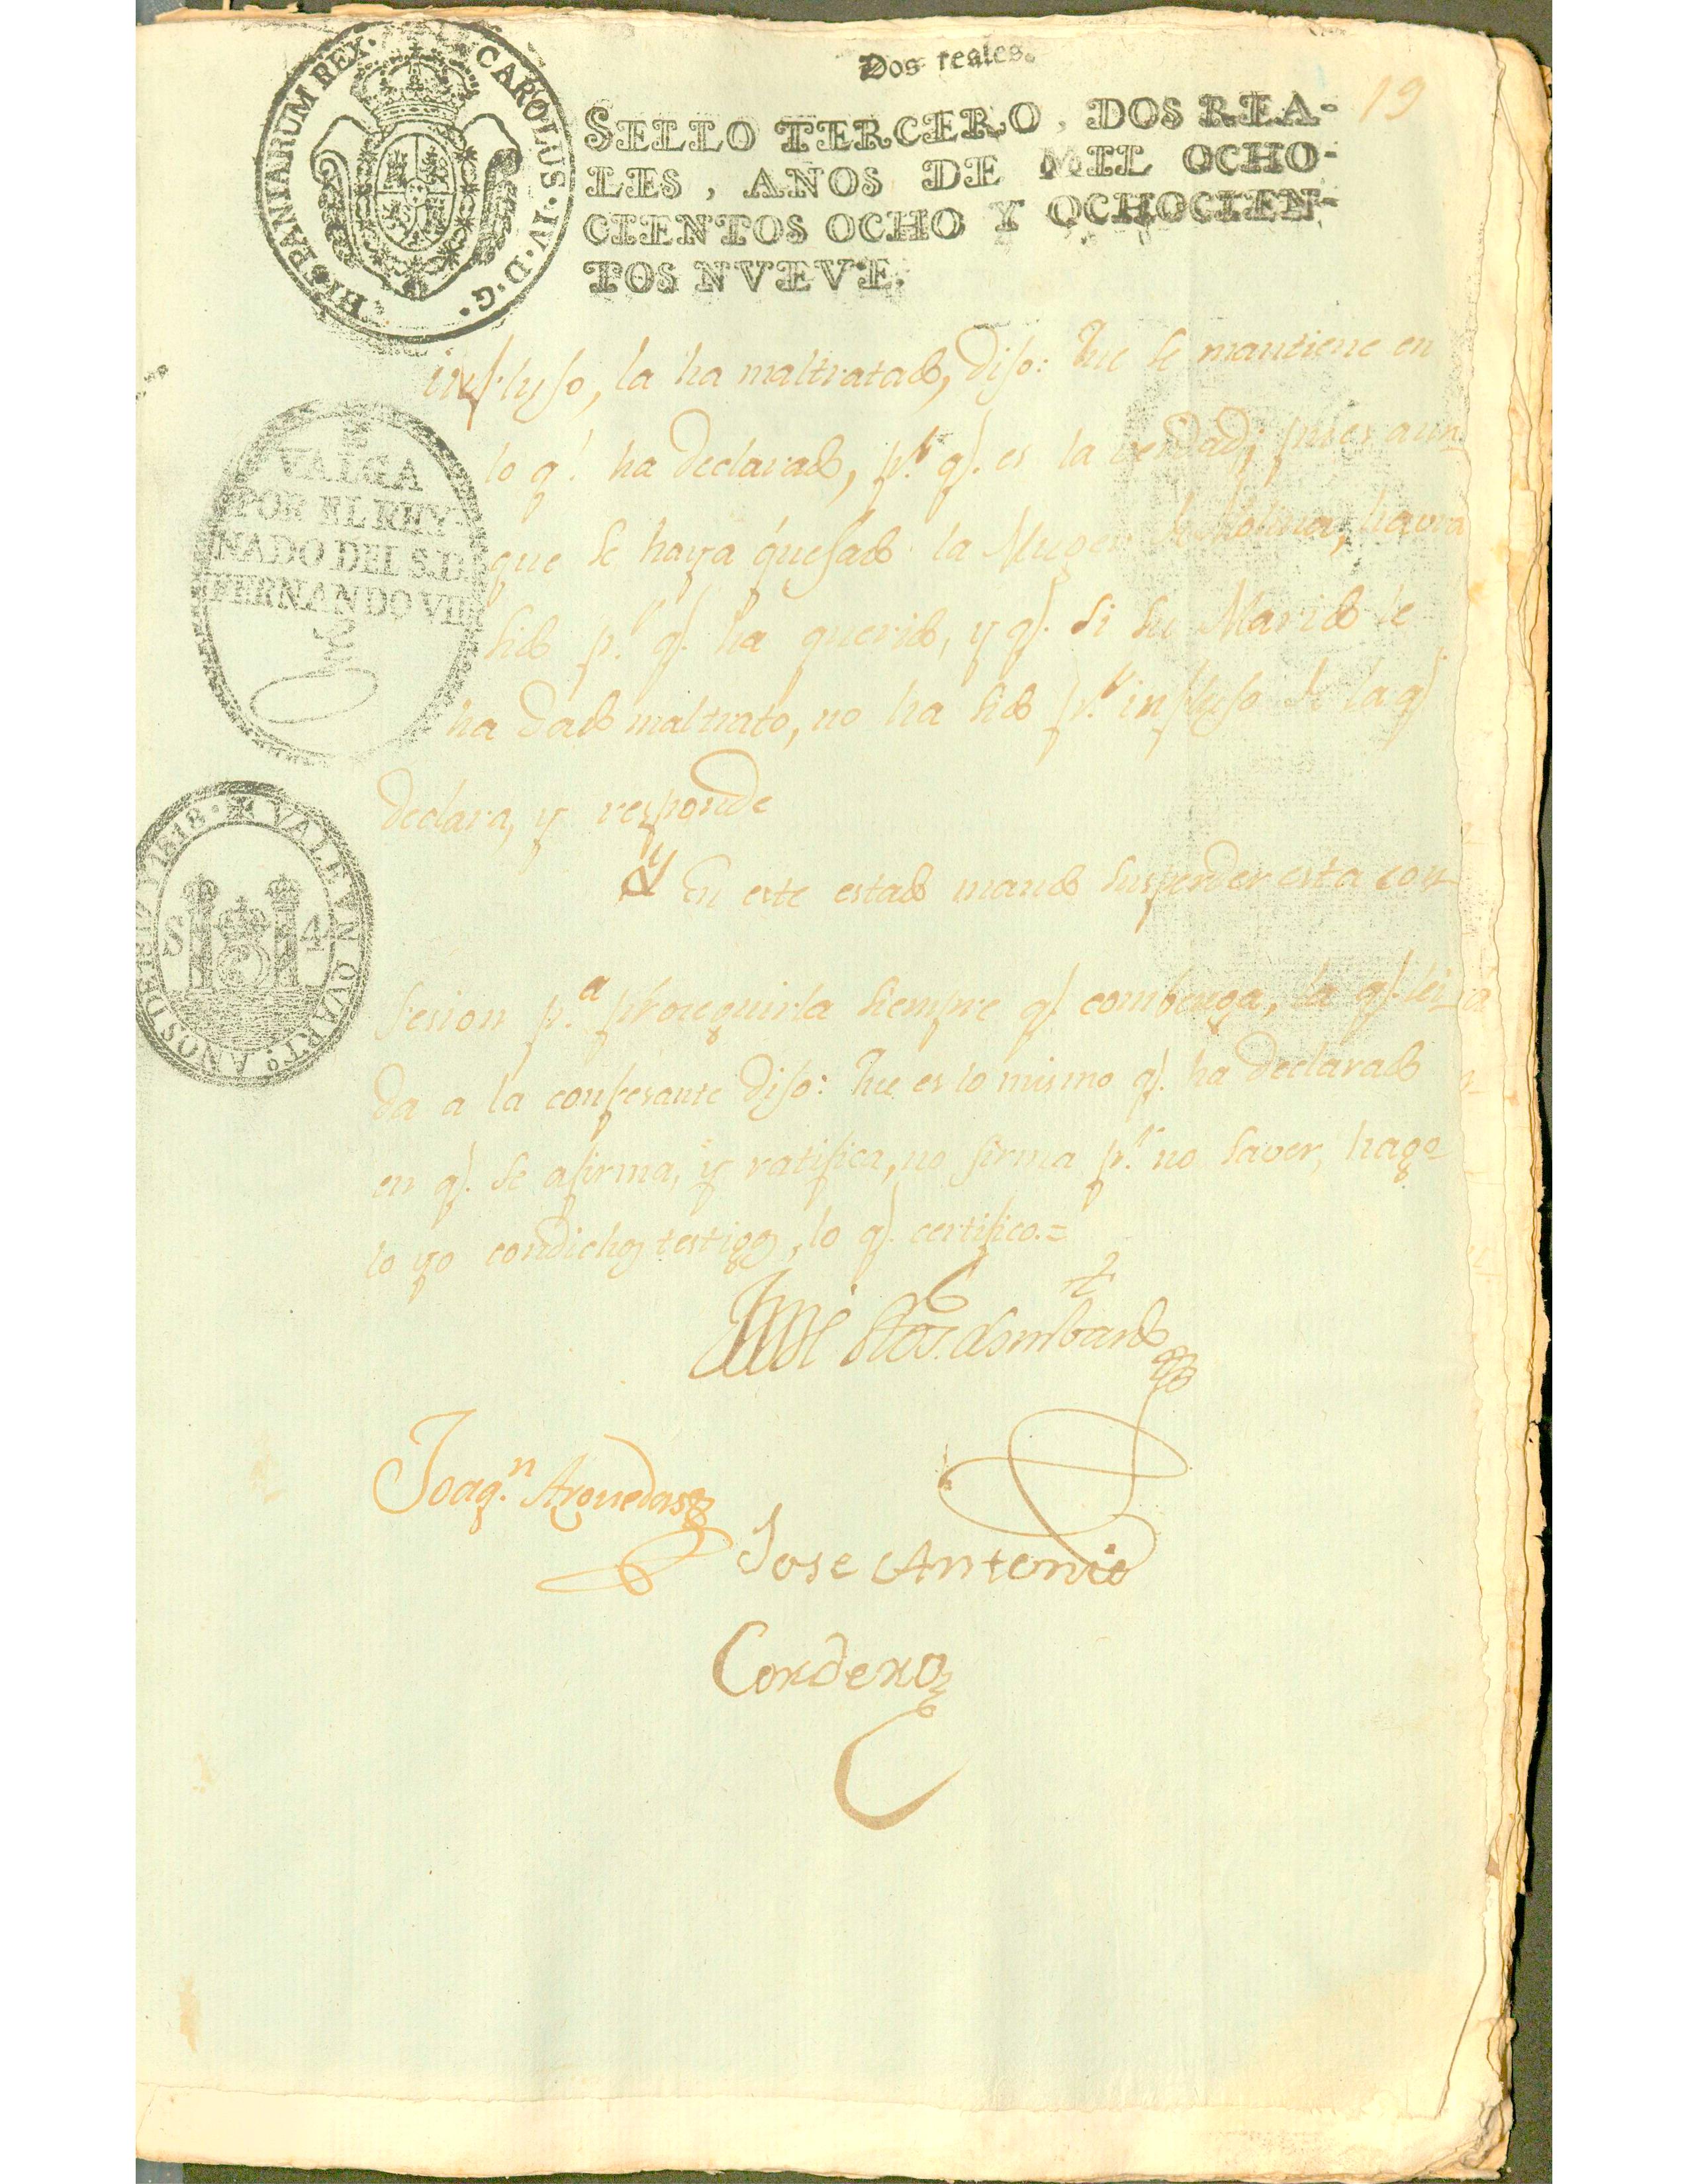 Dos reales.
19
HISPANIARUM REX. CAROLUS·IV·D·G·
SELLO TERCERO, DOS REA-
LES, AÑOS DE MIL OCHO-
CIENTOS OCHO Y OCHOCIEN-
TOS NVEVE.
influjo, la ha maltratado, dijo: Que se mantiene en
VALGA
POR EL REY
NADO DEL S.D.
FERNANDO VII
lo q.e ha declarado, p.r q.e es la verdad; pues aun
que se haya quejado la Muger de Molina, havra
sido p.r q.e ha querido, y q.e si su Marido le
ha dado maltrato, no ha sido p.r influjo de la q.e
declara, y responde
VALE VN QVART.º AÑOS DE 1818
S 4
Y En este estado mando suspender esta con
fesion p.a proseguirla siempre q.e combenga, la q.e lei
da a la confesante dijo: Que es lo mismo q.e ha declarado
en q.e se afirma, y ratifica, no firma p.r no saver, hago
lo yo con dichos testigos, lo q.e certifico.=
Joaq.n Arguedas
Jose Antonio
Cordero